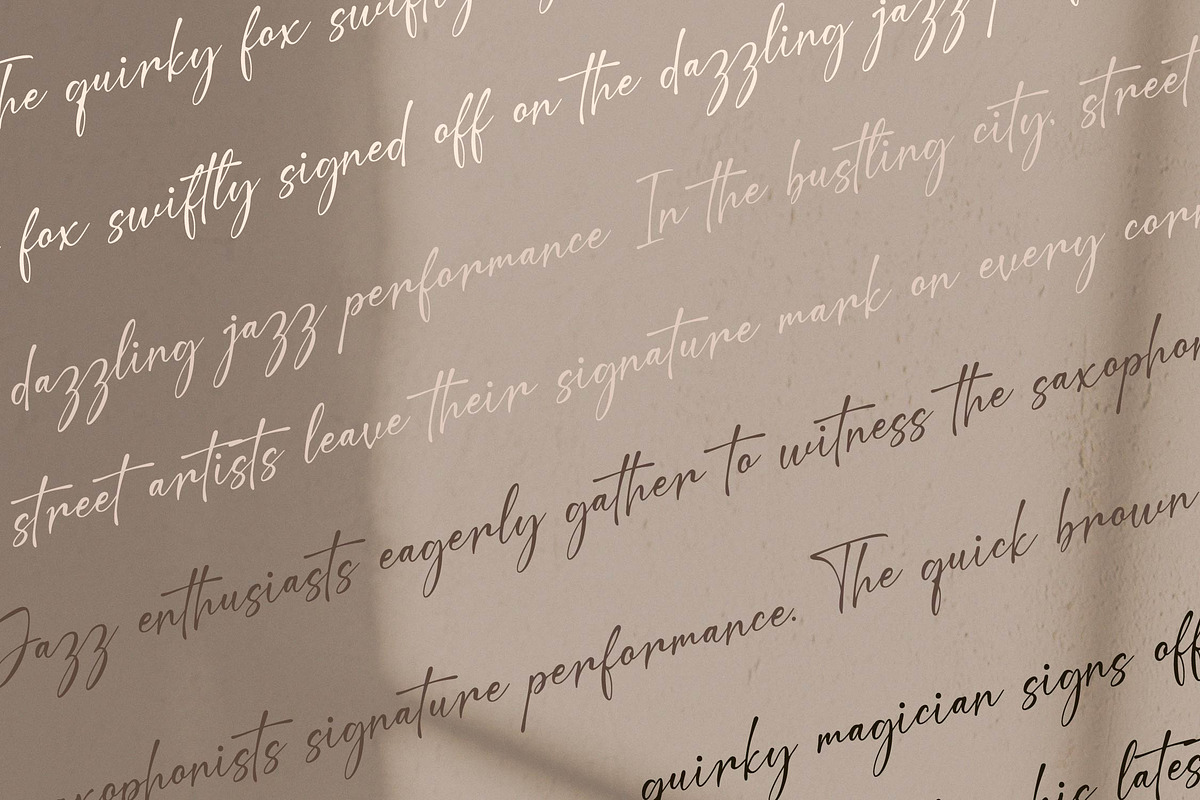 The quirky fox swiftly
fox swiftly signed off on the dazzling jazz
dazzling jazz performance In the bustling city. street
street artists leave their signature mark on every
Jazz enthusiasts eagerly gather to witness the
signature performance. The quick brown
quirky magician signs off